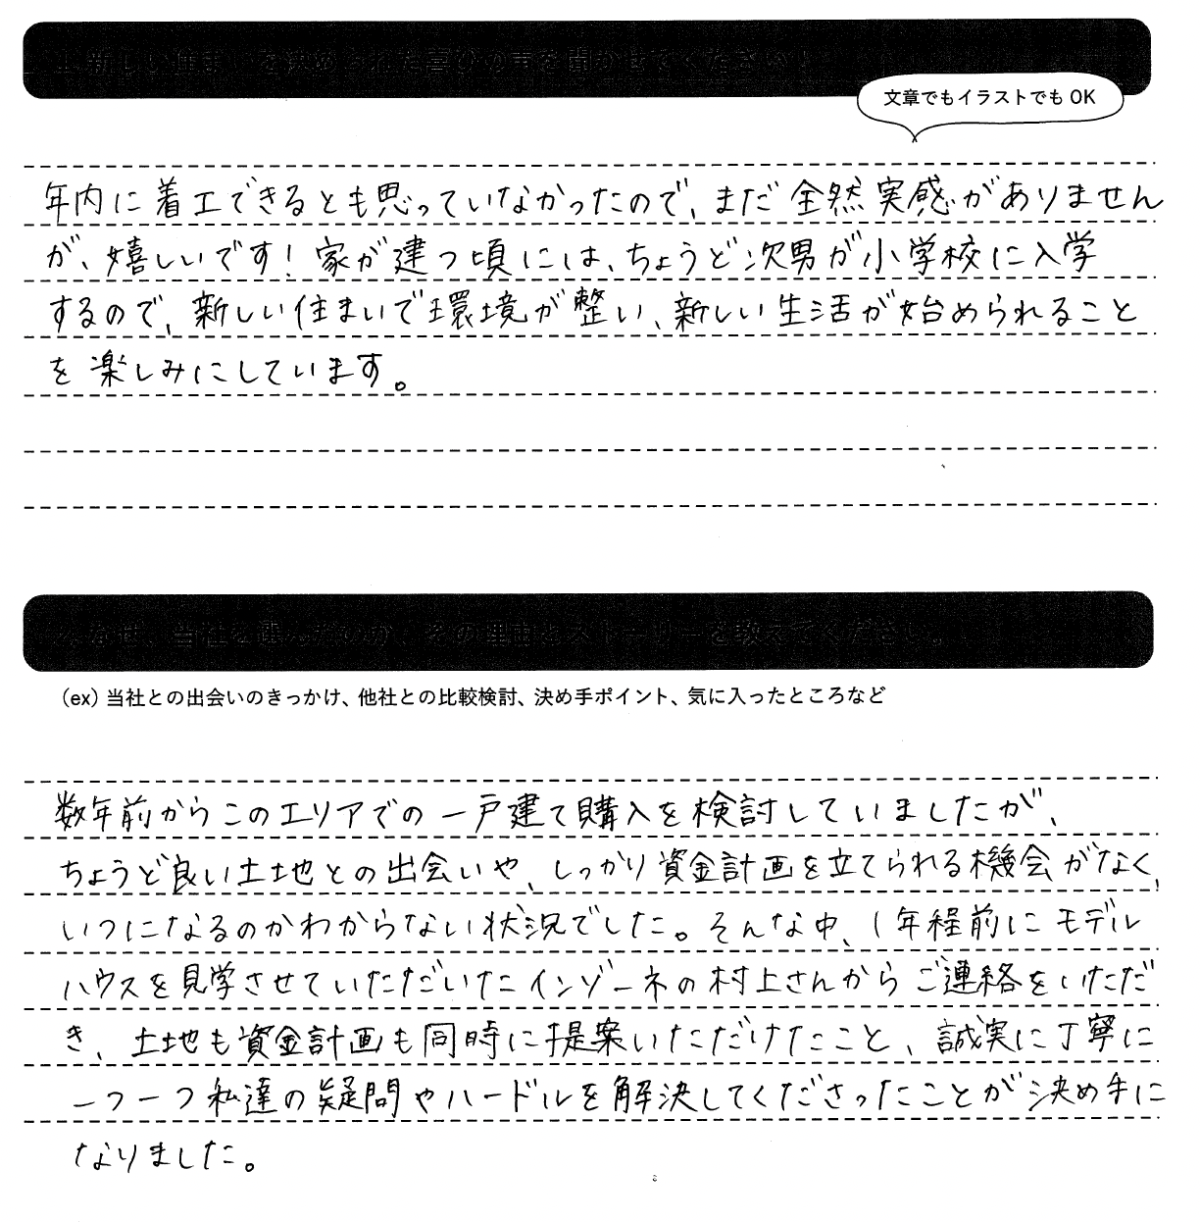 1. 新しい住まいを決められた喜びの声を聞かせてください！
文章でもイラストでも OK
年内に着工できるとも思っていなかったので、まだ全然実感がありません
が、嬉しいです！家が建つ頃には、ちょうど次男が小学校に入学
するので、新しい住まいで環境が整い、新しい生活が始められること
を楽しみにしています。
2. なぜ、当社を選んだのか、その理由とストーリーを教えてください。
（ex）当社との出会いのきっかけ、他社との比較検討、決め手ポイント、気に入ったところなど
数年前からこのエリアでの一戸建て購入を検討していましたが、
ちょうど良い土地との出会いや、しっかり資金計画を立てられる機会がなく、
いつになるのかわからない状況でした。そんな中、1年程前にモデル
ハウスを見学させていただいたインゾーネの村上さんからご連絡をいただ
き、土地も資金計画も同時に提案いただけたこと、誠実に丁寧に
一つ一つ私達の疑問やハードルを解決してくださったことが決め手に
なりました。